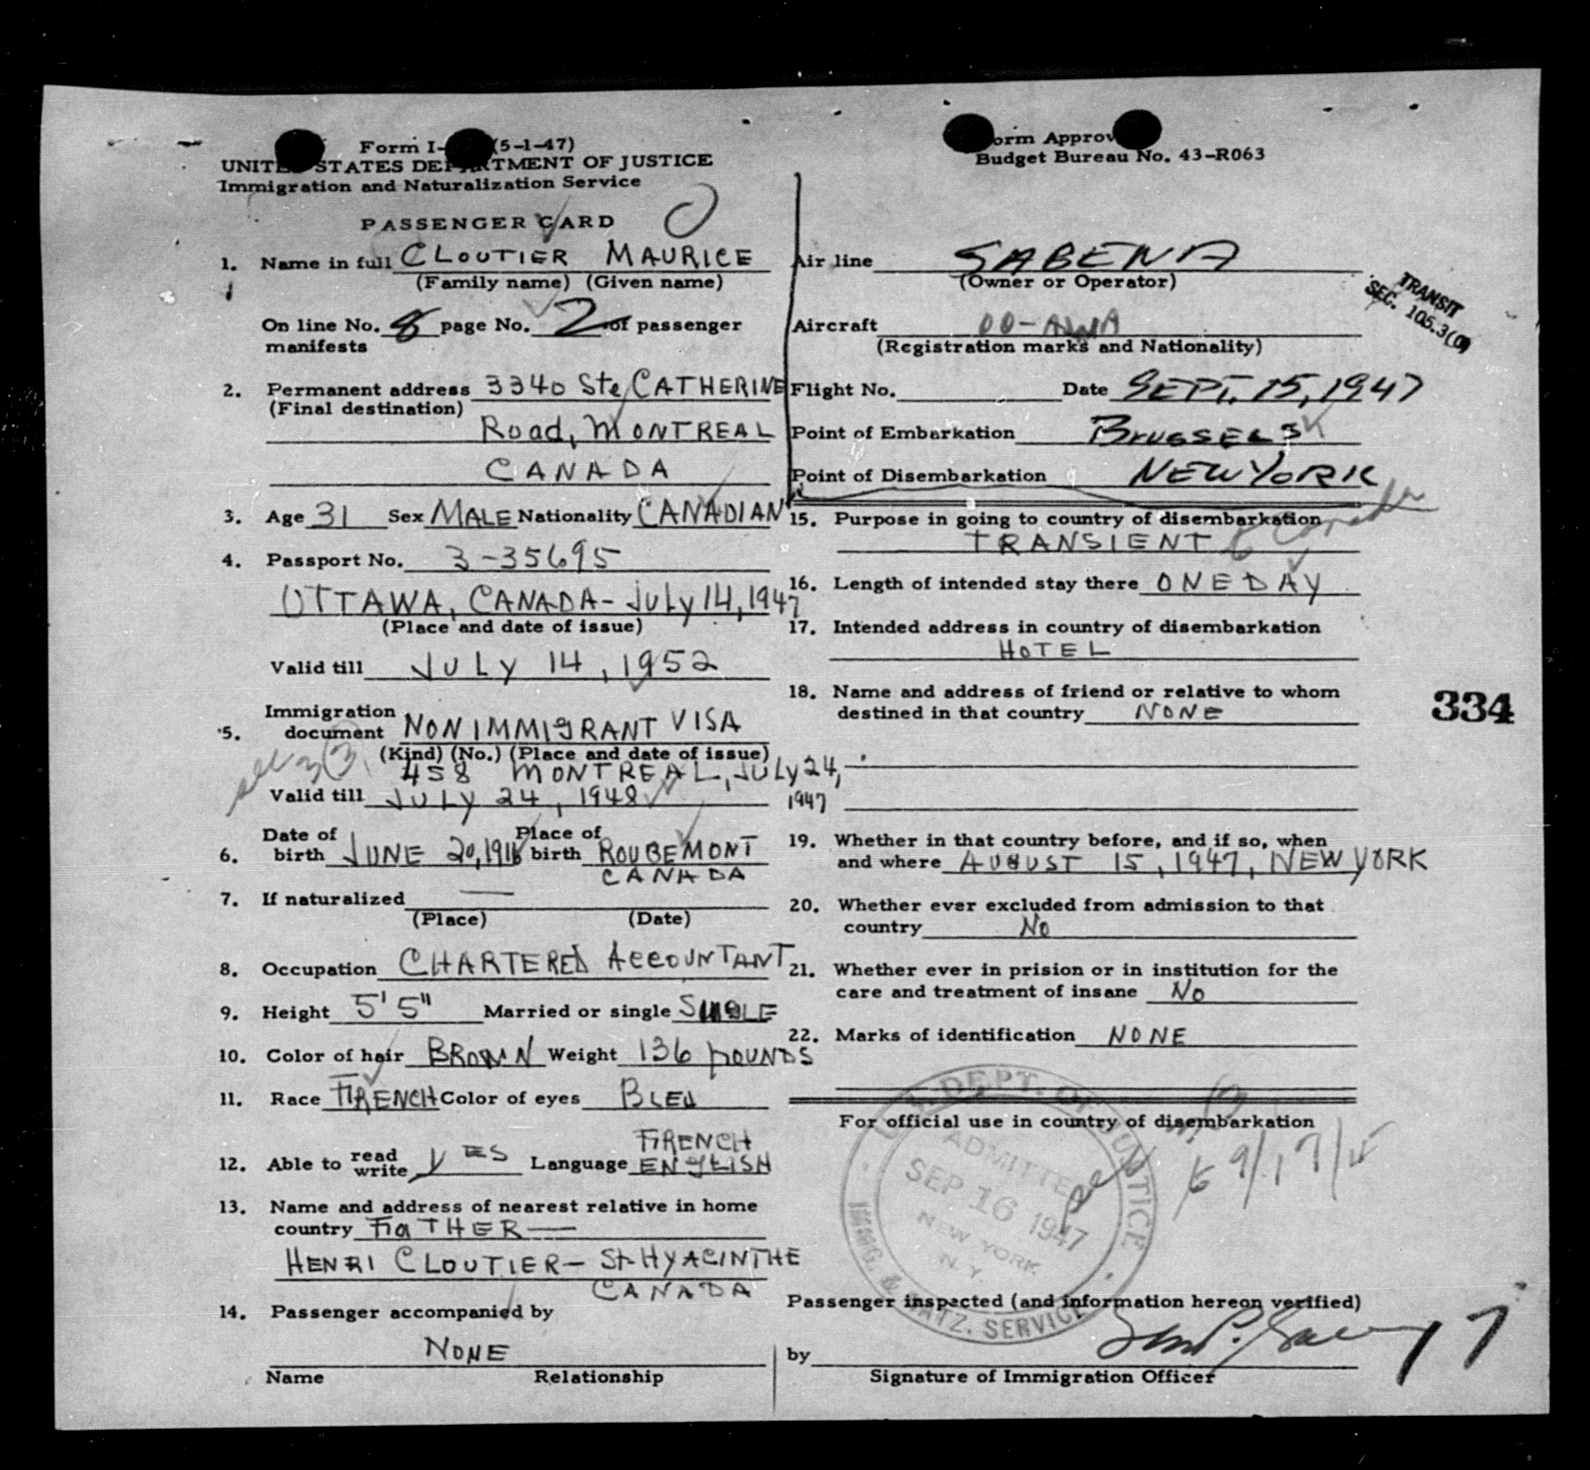 Form I- (5-1-47)
UNITED STATES DEPARTMENT OF JUSTICE
Immigration and Naturalization Service
PASSENGER CARD
1. Name in full CLOUTIER MAURICE
(Family name) (Given name)
On line No. 8 page No. 2 of passenger
manifests
2. Permanent address 3340 Ste CATHERINE
(Final destination)
Road, MONTREAL
CANADA
3. Age 31 Sex MALE Nationality CANADIAN
4. Passport No. 3-35695
OTTAWA, CANADA - July 14, 1947
(Place and date of issue)
Valid till JULY 14, 1952
5. Immigration
document NON IMMIGRANT VISA
(Kind) (No.) (Place and date of issue)
458 MONTREAL, JULY 24,
1947
Valid till JULY 24, 1948
6. Date of birth JUNE 20, 1916 Place of birth ROUGEMONT
CANADA
7. If naturalized —
(Place) (Date)
8. Occupation CHARTERED ACCOUNTANT
9. Height 5' 5" Married or single SINGLE
10. Color of hair BROWN Weight 136 pounds
11. Race FRENCH Color of eyes BLEU
12. Able to read write YES Language FRENCH
ENGLISH
13. Name and address of nearest relative in home
country FATHER —
HENRI CLOUTIER - St-HYACINTHE
CANADA
14. Passenger accompanied by
NONE
Name Relationship
Form Approv
Budget Bureau No. 43-R063
Air line SABENA
(Owner or Operator)
TRANSIT
SEC. 105.3(
Aircraft OO-AWA
(Registration marks and Nationality)
Flight No. Date SEPT. 15, 1947
Point of Embarkation BRUSSELS
Point of Disembarkation NEW YORK
15. Purpose in going to country of disembarkation
TRANSIENT to Canada
16. Length of intended stay there ONE DAY
17. Intended address in country of disembarkation
HOTEL
18. Name and address of friend or relative to whom
destined in that country NONE
334
19. Whether in that country before, and if so, when
and where AUGUST 15, 1947, NEW YORK
20. Whether ever excluded from admission to that
country No
21. Whether ever in prision or in institution for the
care and treatment of insane No
22. Marks of identification NONE
For official use in country of disembarkation
U.S. DEPT. OF JUSTICE
ADMITTED
SEP 16 1947
NEW YORK
N. Y.
IMMIG. & NATZ. SERVICE
Passenger inspected (and information hereon verified)
by
Signature of Immigration Officer